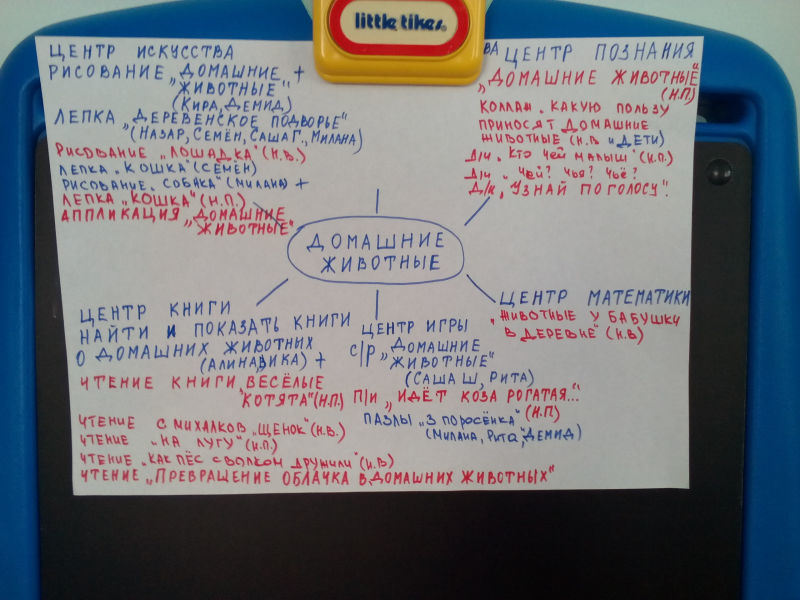 little tikes
ЦЕНТР ИСКУССТВА
РИСОВАНИЕ „ДОМАШНИЕ +
ЖИВОТНЫЕ"
(КИРА, ДЕМИД)
ЛЕПКА „ДЕРЕВЕНСКОЕ ПОДВОРЬЕ"
(НАЗАР, СЕМЁН, САША Г., МИЛАНА)
РИСОВАНИЕ „ЛОШАДКА" (Н.В.)
ЛЕПКА „КОШКА" (СЕМЁН)
РИСОВАНИЕ „СОБАКА" (МИЛАНА) +
ЛЕПКА „КОШКА" (Н.П.)
АППЛИКАЦИЯ „ДОМАШНИЕ
ЖИВОТНЫЕ"
ВА ЦЕНТР ПОЗНАНИЯ
„ДОМАШНИЕ ЖИВОТНЫЕ"
(Н.П)
КОЛЛАЖ „КАКУЮ ПОЛЬЗУ
ПРИНОСЯТ ДОМАШНИЕ
ЖИВОТНЫЕ (Н.В И ДЕТИ)
Д/И „КТО ЧЕЙ МАЛЫШ" (Н.П.)
Д/И „ЧЕЙ? ЧЬЯ? ЧЬЁ?
Д/И „УЗНАЙ ПО ГОЛОСУ".
ДОМАШНИЕ
ЖИВОТНЫЕ
ЦЕНТР КНИГИ
НАЙТИ И ПОКАЗАТЬ КНИГИ
О ДОМАШНИХ ЖИВОТНЫХ
(АЛИНА, ВИКА) +
ЧТЕНИЕ КНИГИ „ВЕСЁЛЫЕ
КОТЯТА" (Н.П)
ЧТЕНИЕ С МИХАЛКОВ „ЩЕНОК" (Н.В.)
ЧТЕНИЕ „НА ЛУГУ" (Н.П.)
ЧТЕНИЕ „КАК ПЁС С ВОЛКОМ ДРУЖИЛИ" (Н.В)
ЧТЕНИЕ „ПРЕВРАЩЕНИЕ ОБЛАЧКА В ДОМАШНИХ ЖИВОТНЫХ"
ЦЕНТР ИГРЫ
С/Р „ДОМАШНИЕ
ЖИВОТНЫЕ"
(САША Ш, РИТА)
П/И „ИДЁТ КОЗА РОГАТАЯ...
(Н.П)
ПАЗЛЫ „3 ПОРОСЁНКА"
(МИЛАНА, РИТА, ДЕМИД)
ЦЕНТР МАТЕМАТИКИ
„ЖИВОТНЫЕ У БАБУШКИ
В ДЕРЕВНЕ" (Н.В)